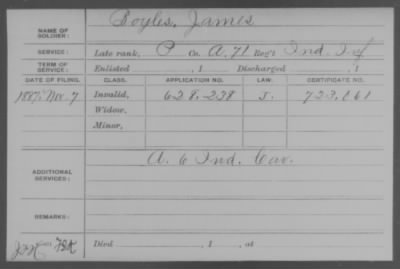 NAME OF SOLDIER: Boyles, James
SERVICE: Late rank, P Co. A, 71 Reg't Ind. Inf
TERM OF SERVICE: Enlisted , 1 Discharged , 1
DATE OF FILING. CLASS. APPLICATION NO. LAW. CERTIFICATE NO.
1887, Nov. 7 Invalid, 628.238 J. 723.161
Widow,
Minor,
ADDITIONAL SERVICES: A. 6 Ind. Cav.
REMARKS:
Died , 1 , at